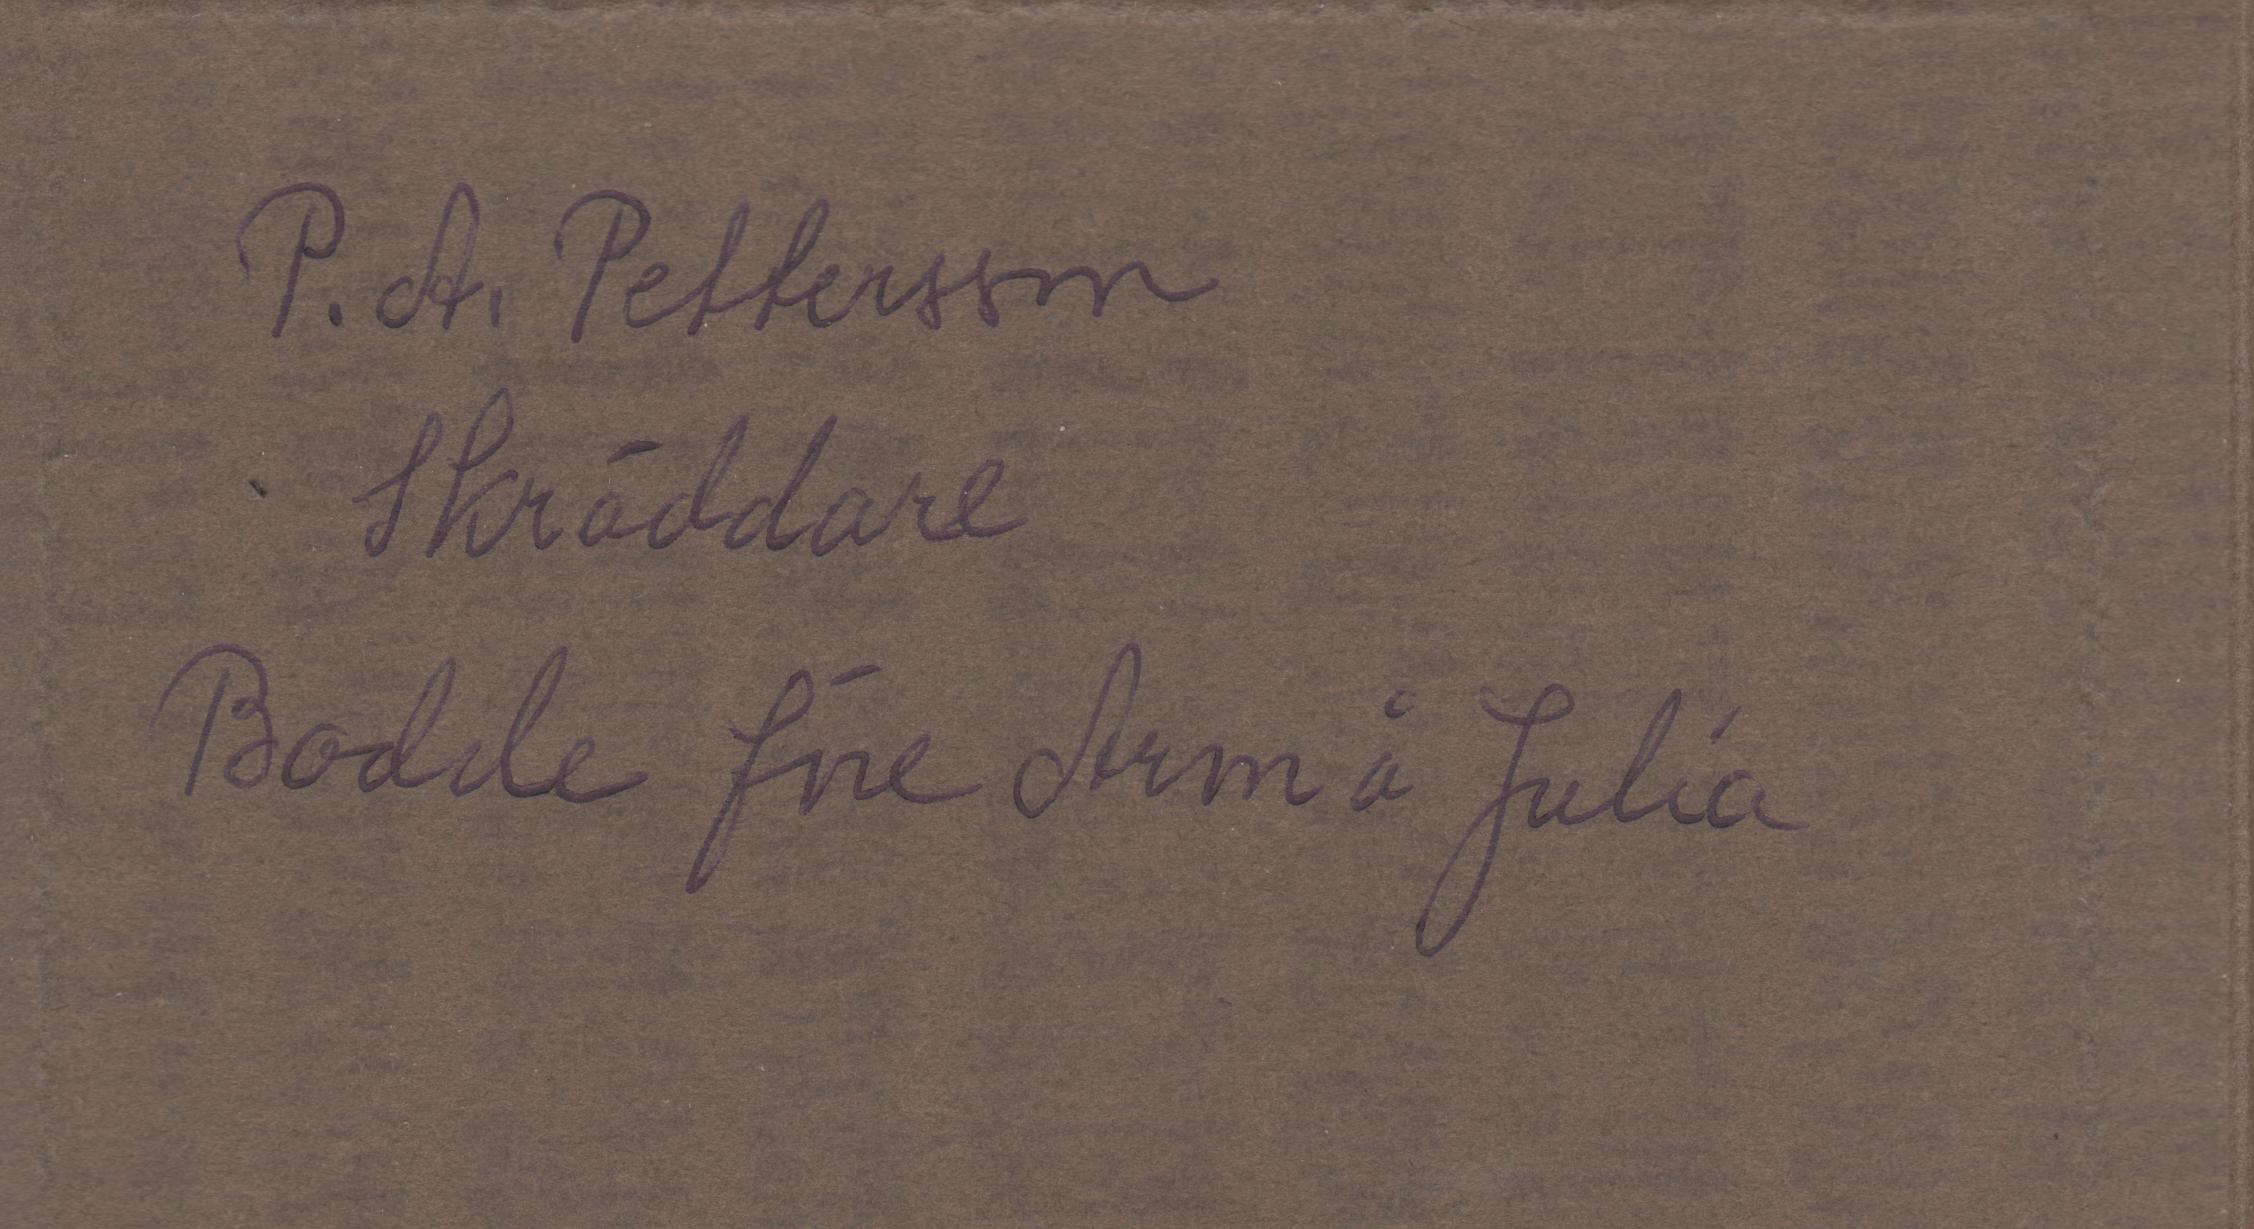 P. A. Pettersson
Skräddare
Bodde före Arm å Julia